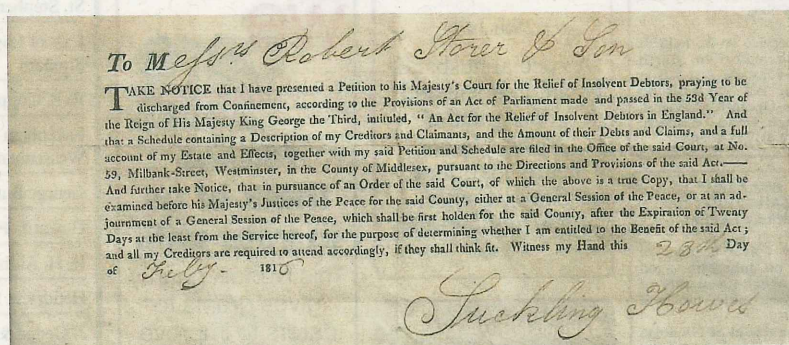 To Messrs Robert Storer & Son
TAKE NOTICE that I have presented a Petition to his Majesty's Court for the Relief of Insolvent Debtors, praying to be
discharged from Confinement, according to the Provisions of an Act of Parliament made and passed in the 53d Year of
the Reign of His Majesty King George the Third, intituled, “ An Act for the Relief of Insolvent Debtors in England.” And
that a Schedule containing a Description of my Creditors and Claimants, and the Amount of their Debts and Claims, and a full
account of my Estate and Effects, together with my said Petition and Schedule are filed in the Office of the said Court, at No.
59, Milbank-Street, Westminster, in the County of Middlesex, pursuant to the Directions and Provisions of the said Act.——
And further take Notice, that in pursuance of an Order of the said Court, of which the above is a true Copy, that I shall be
examined before his Majesty's Justices of the Peace for the said County, either at a General Session of the Peace, or at an ad-
journment of a General Session of the Peace, which shall be first holden for the said County, after the Expiration of Twenty
Days at the least from the Service hereof, for the purpose of determining whether I am entitled to the Benefit of the said Act;
and all my Creditors are required to attend accordingly, if they shall think fit. Witness my Hand this 28th Day
of Feby. 1816
Suckling Howes